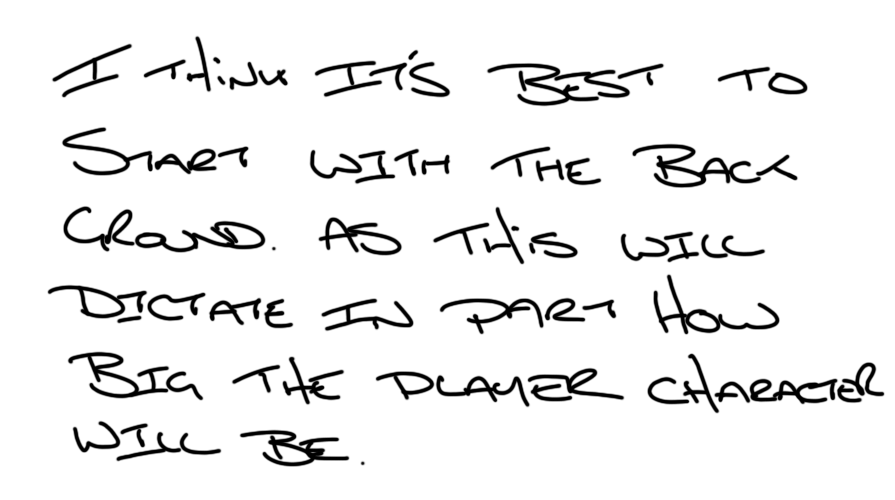 I THINK IT'S BEST TO
START WITH THE BACK
GROUND. AS THIS WILL
DICTATE IN PART HOW
BIG THE PLAYER CHARACTER
WILL BE.